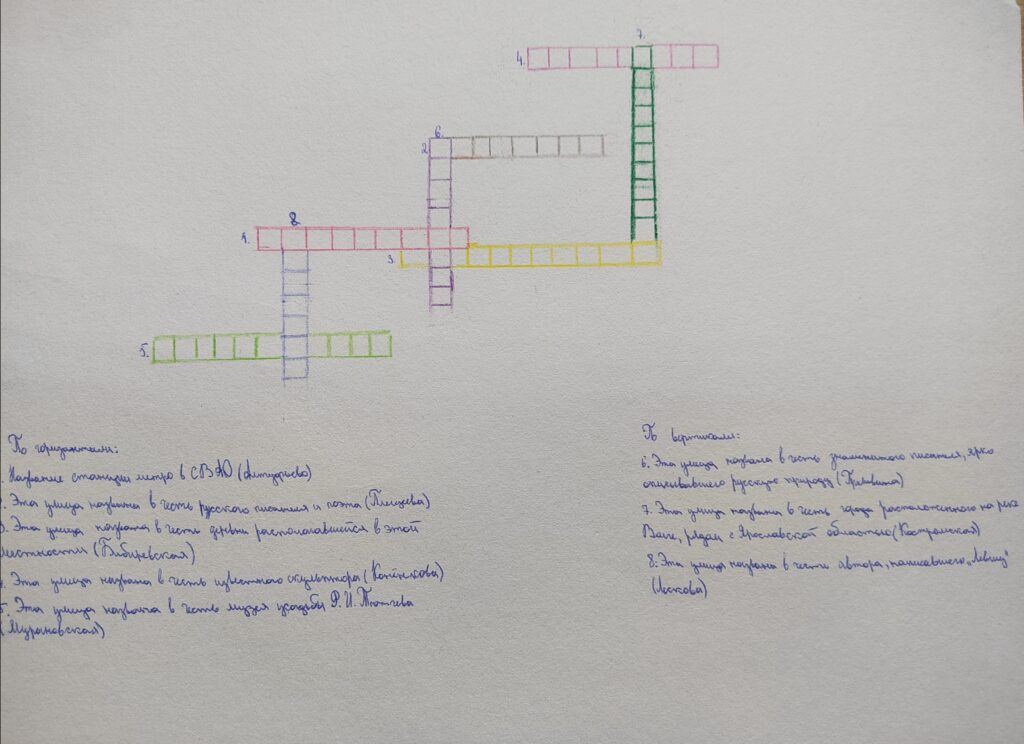 7.
4.
6.
2.
8
1.
3.
5.
По горизонтали:
. Название станции метро в СВАО (Алтуфьево)
2. Эта улица названа в честь русского писателя и поэта (Плещеева)
3. Эта улица названа в честь деревни располагавшейся в этой
местности (Бибиревская)
4. Эта улица названа в честь известного скульптора (Конёнкова)
5. Эта улица названа в честь музея усадьбы Ф. И. Тютчева
(Мурановская)
По вертикали:
6. Эта улица названа в честь знаменитого писателя, ярко
описывавшего русскую природу (Пришвина)
7. Эта улица названа в честь города расположенного на реке
Волге, рядом с Ярославской областью (Костромская)
8. Эта улица названа в честь автора, написавшего „Левшу"
(Лескова)